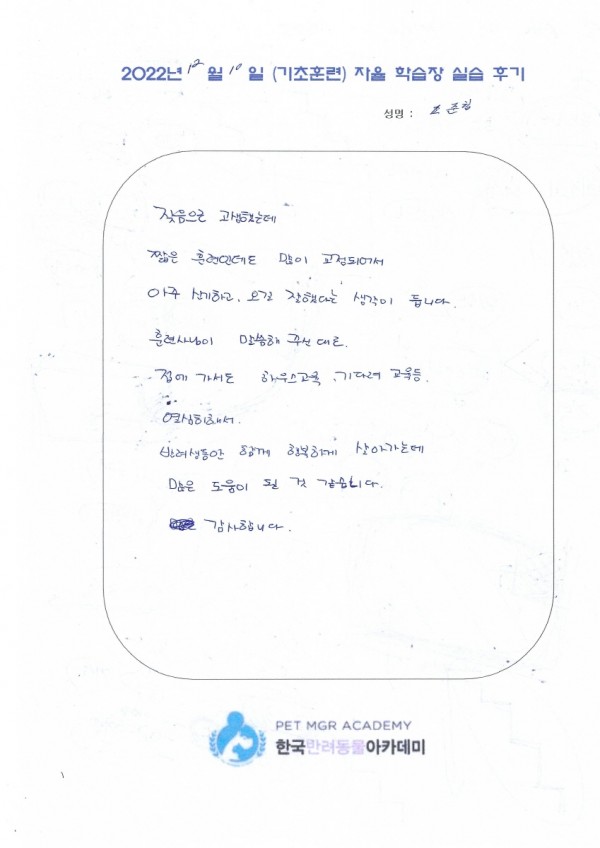 2022년 12월 10일 (기초훈련) 자율 학습장 실습 후기
성명 : 조준
짖음으로 고생했는데
짧은 훈련인데도 많이 교정되어서
아주 신기하고, 오길 잘했다는 생각이 듭니다.
훈련사님이 말씀해 주신대로.
집에 가서도 하우스교육, 기다려 교육등.
열심히해서.
반려생동안 함께 행복하게 살아가는데
많은 도움이 될 것 같습니다.
감사합니다.
PET MGR ACADEMY
한국반려동물아카데미